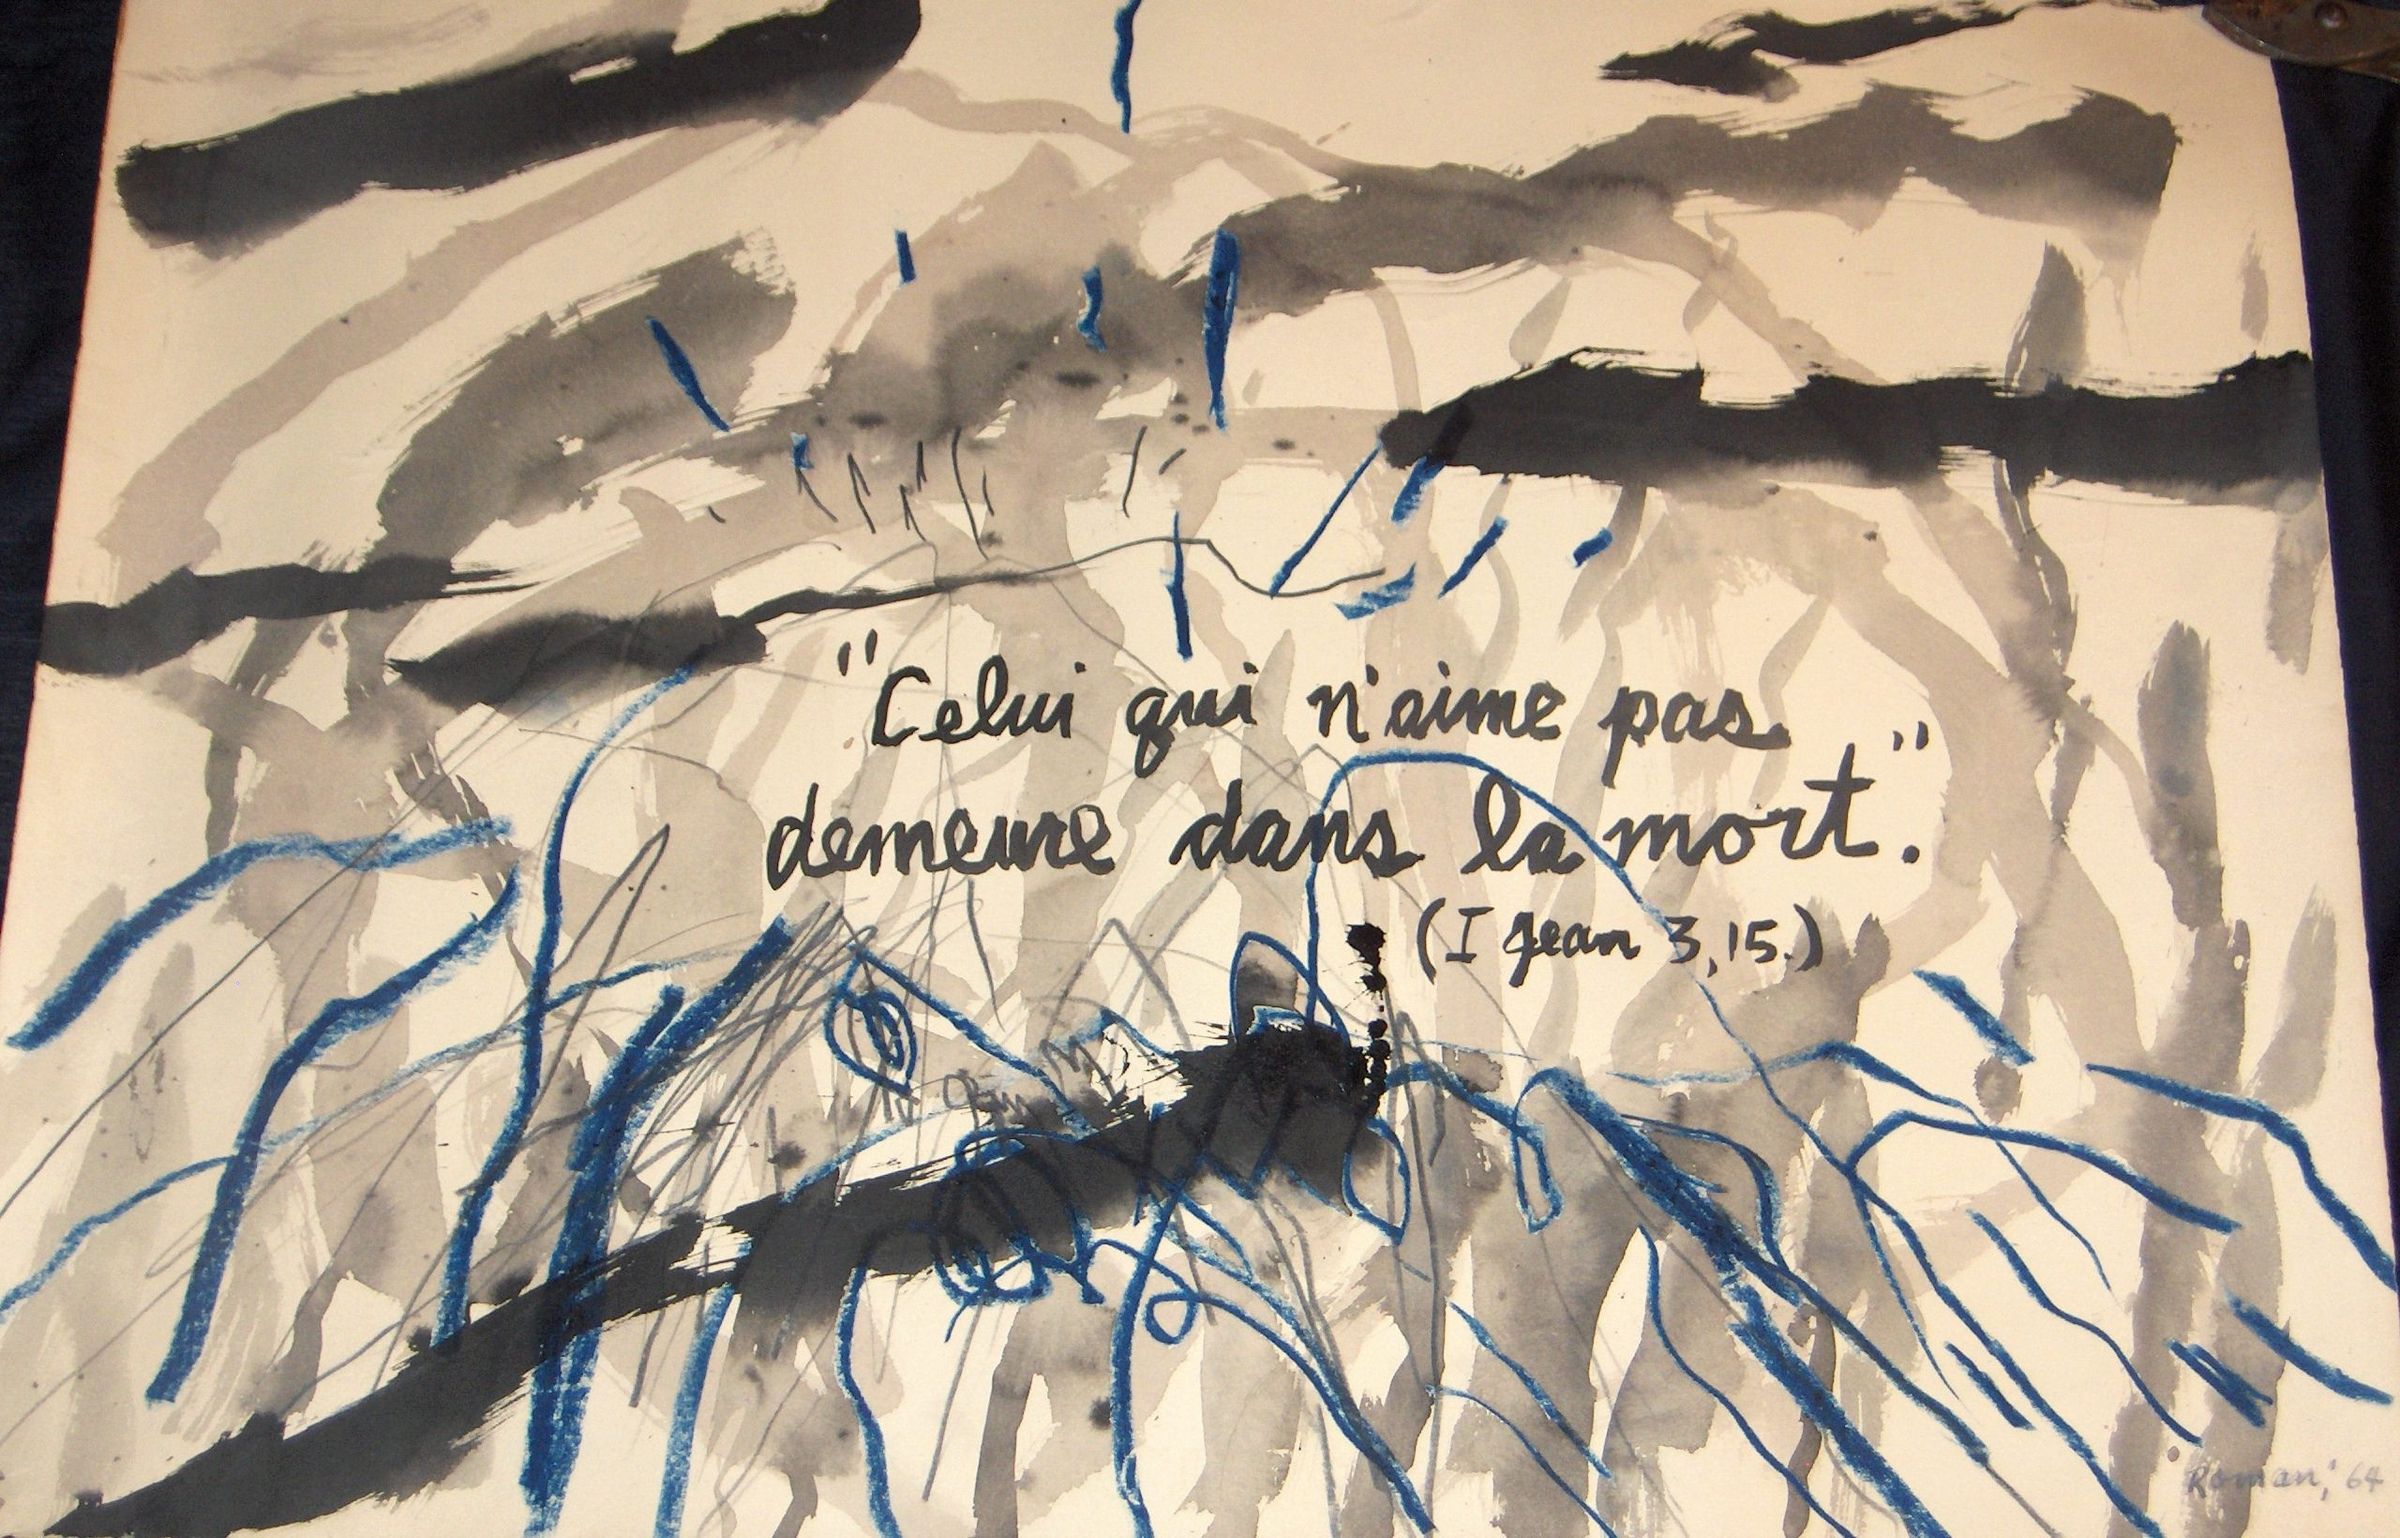 "Celui qui n'aime pas
demeure dans la mort."
(I Jean 3,15.)
Roman, '64